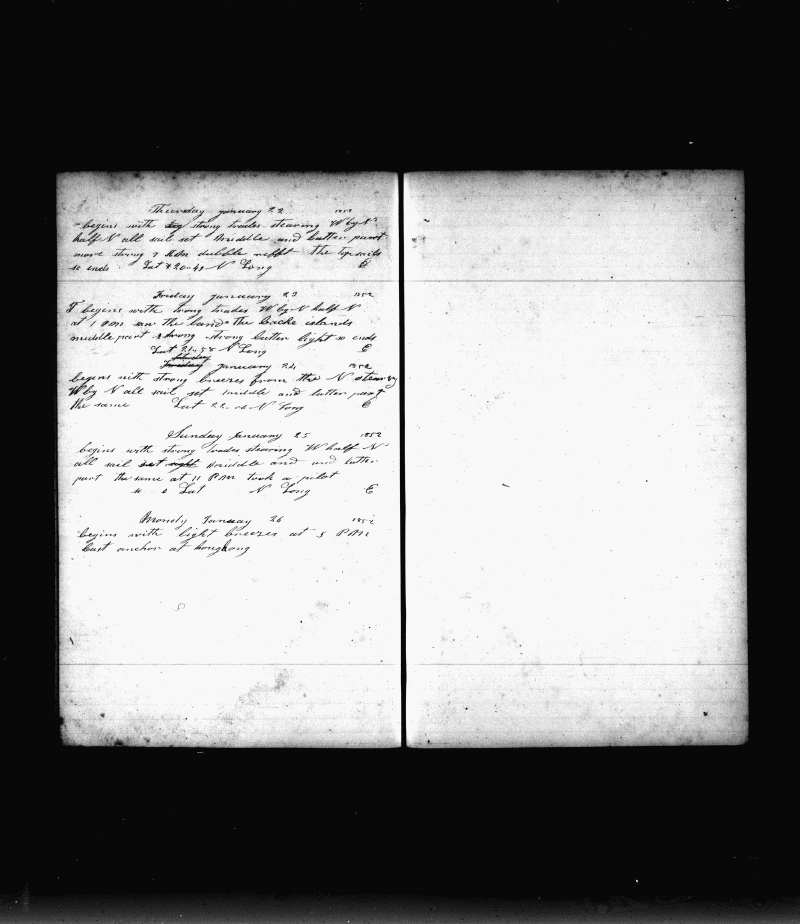 Thursday January 22 1852
begins with strong trades stearing W by N
half N all sail set middle and latter part
more strong dubble refft the topsails
so ends Lat 20.40 N Long E
Friday January 23 1852
begins with trong trades W by N half N
at 1 PM saw the land the backe islands
middle part strong latter light so ends
Lat 21.58 N Long E
Saturday
January 24 1852
begins with strong breezes from the N stearing
W by N all sail set middle and latter part
the same Lat 22 N Long E
Sunday January 25 1852
begins with strong trades stearing W half N
all sail set middle and latter
part the same at 11 PM took a pilot
so e Lat N Long E
Mondy January 26 1852
begins with light breezes at 5 PM
Cast anchor at hongkong